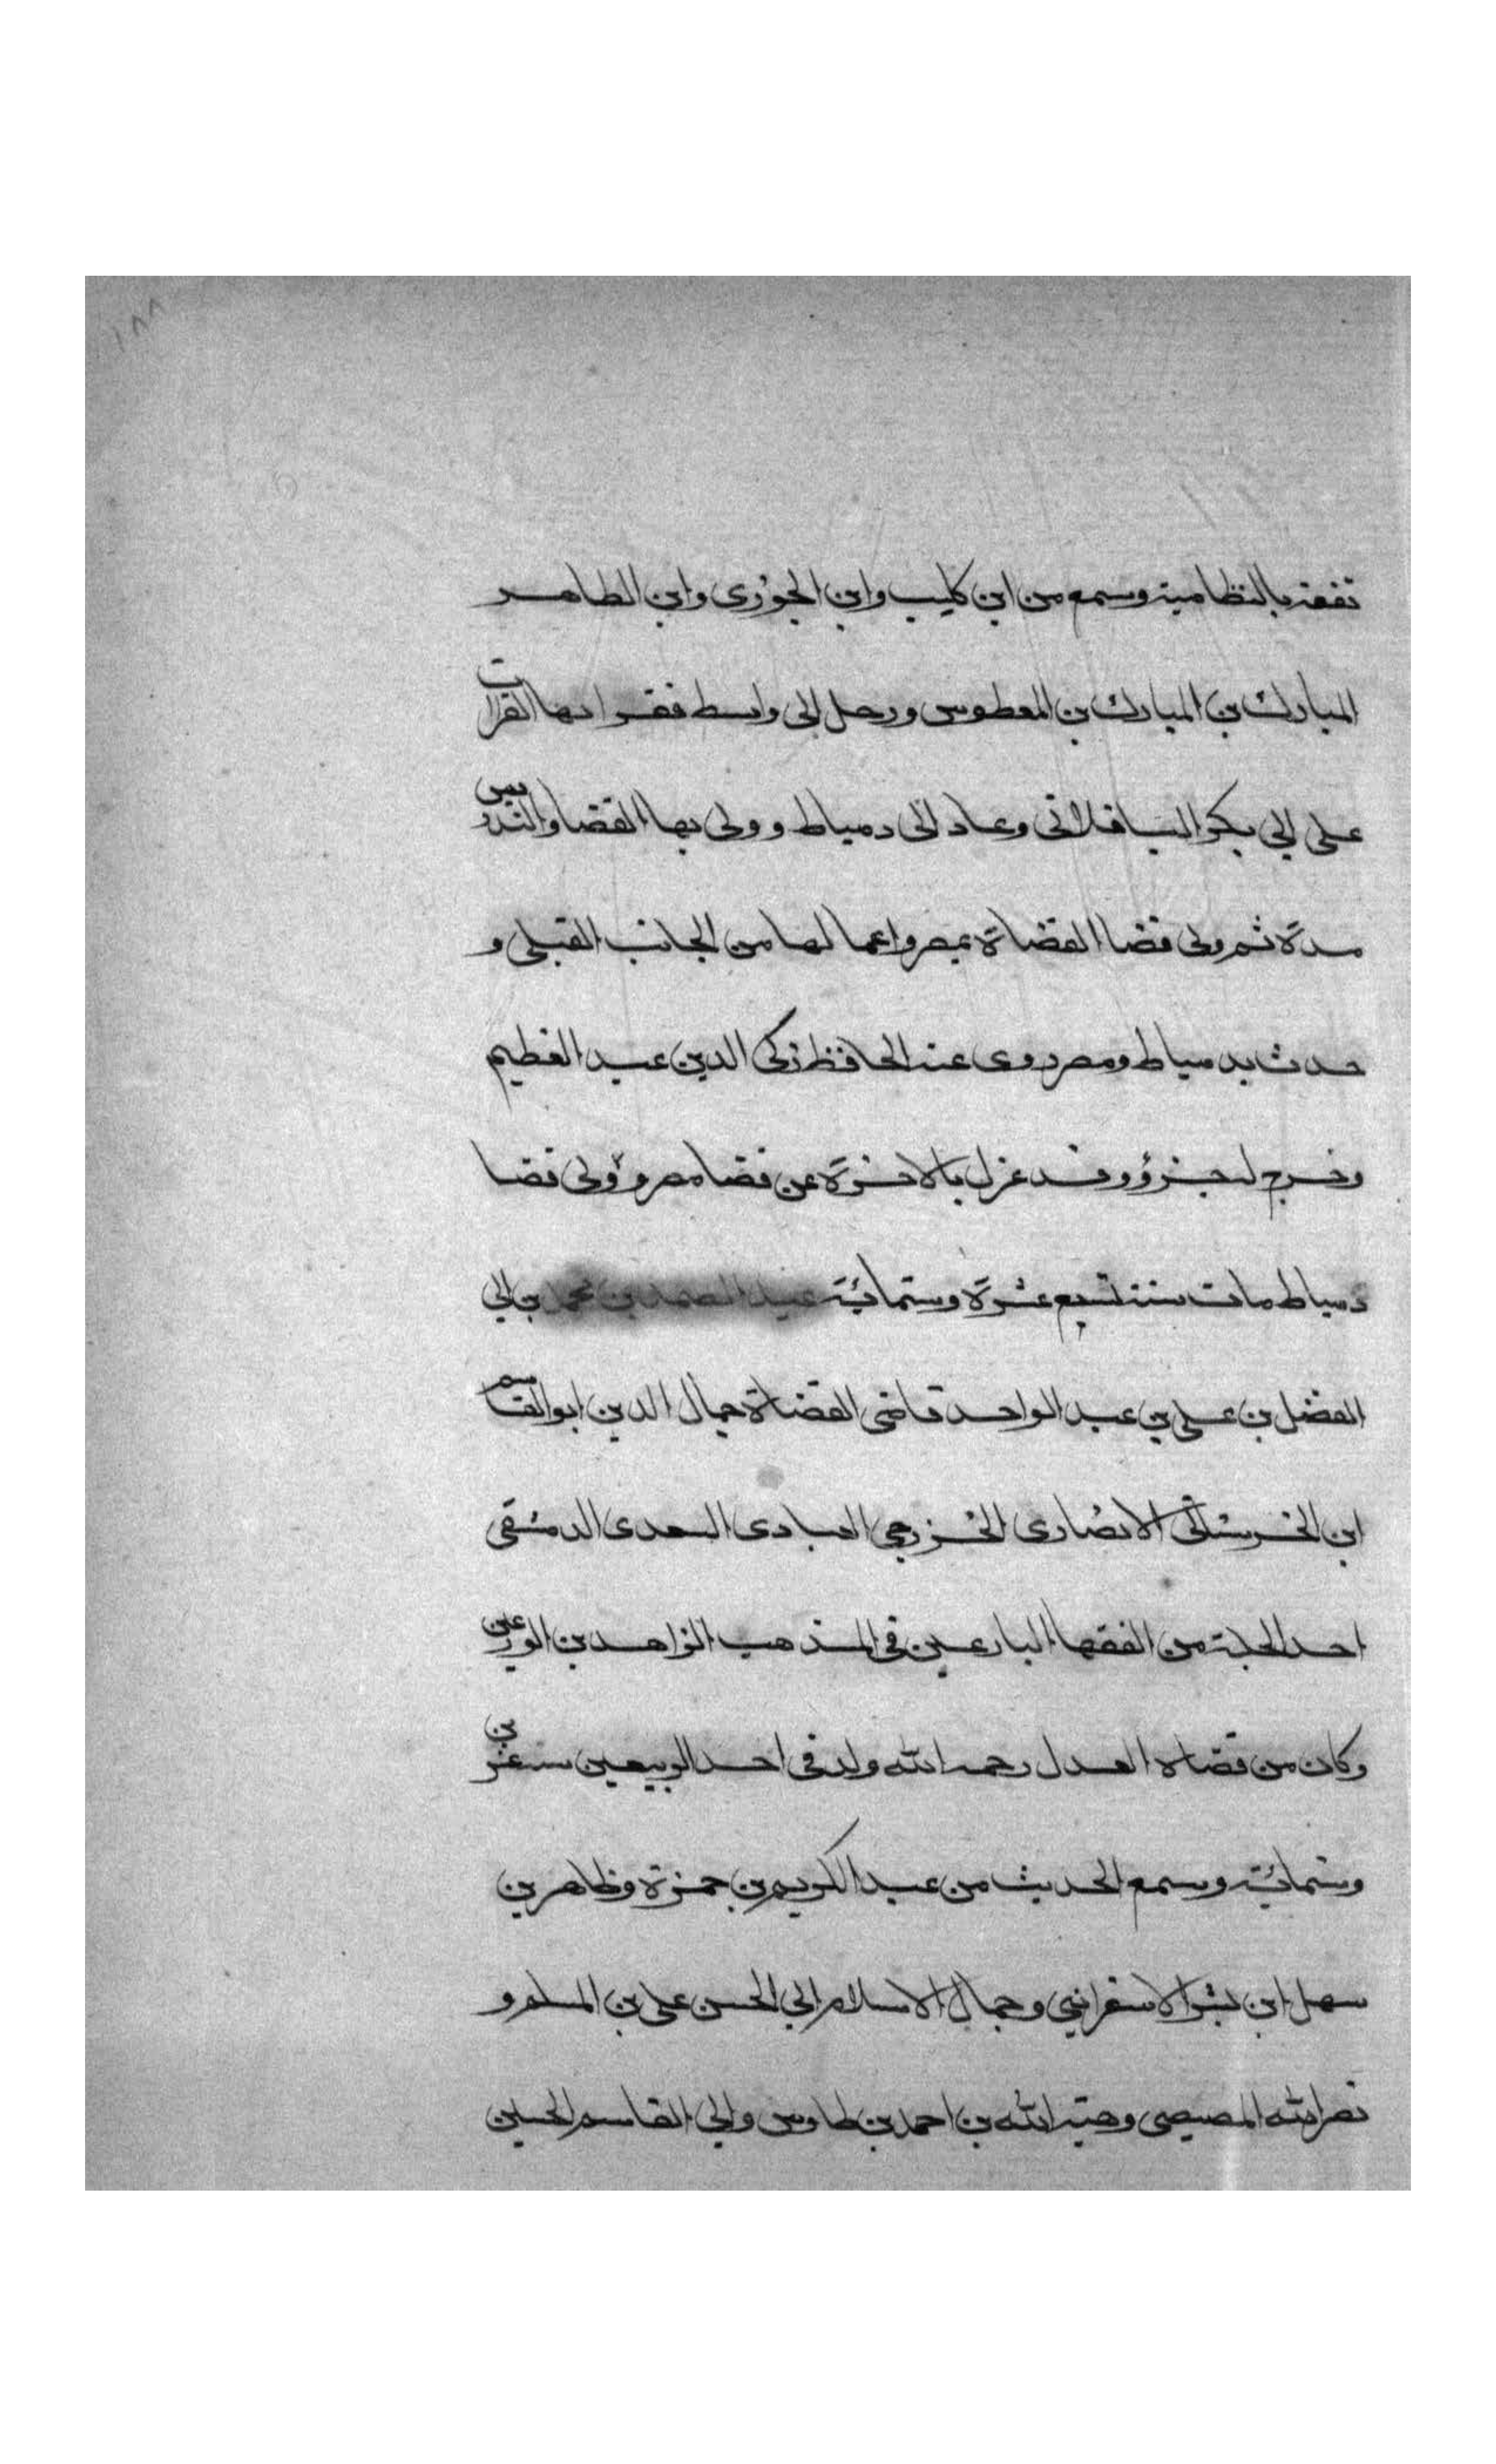 ١٨٨
تفقه بالنظامية وسمع من ابن كليب وابن الجوزى وابن الطاهر
المبارك بن المبارك بن المعطوس ورحل الى واسط فقرا بها القرات
على ابي بكر الباقلانى وعاد الى دمياط وولى بها القضا والتدريس
مدة ثم ولى قضا القضاة بمصر واعمالها من الجانب القبلى و
حدث بدمياط ومصر روى عنه الحافظ زكى الدين عبد العظيم
وخرج له جزؤ وقد عزل بالاخرة عن قضا مصر وولى قضا
دمياط مات سنة تسع عشرة وستمائية عبد الصمد بن محمد بن ابي
الفضل بن على بن عبد الواحد قاضى القضاة جمال الدين ابو القاسم
ابن الخرستانى الانصارى الخزرجي العبادى السعدى الدمشقى
احد الجلة من الفقها البارعين فى المذهب الزاهدين الورعين
وكان من قضاة العدل رحمه الله ولد فى احد الربيعين سنة عشرين
وستمائية وسمع الحديث من عبد الكريم بن حمزة وظاهر بن
سهل ابن بشر الاسفراني وجمال الاسلام ابي الحسن على بن المسلم و
نصر الله المصيصى وهبة الله بن احمد بن طاوس وابي القاسم الحسين